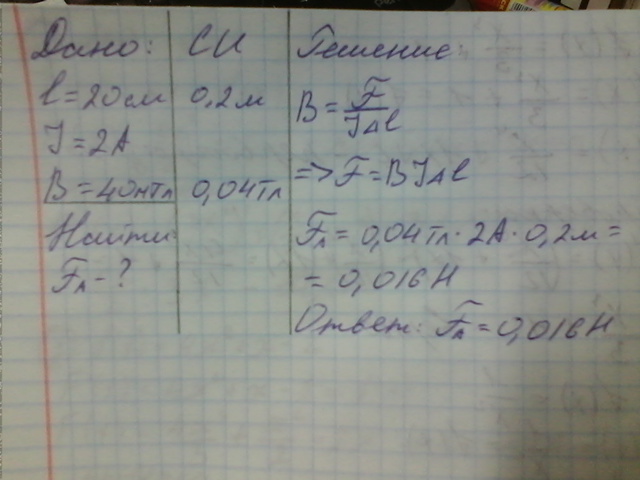 Дано:
l = 20 см
J = 2А
B = 40мТл
Найти
Fл - ?
СИ
0,2 м
0,04 Тл
Решение:
B = F / JΔl
=> F = BJΔl
Fл = 0,04 Тл · 2А · 0,2м =
= 0,016 Н
Ответ: Fл = 0,016 Н